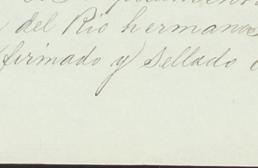 del Rio hermanos
(firmado y) sellado